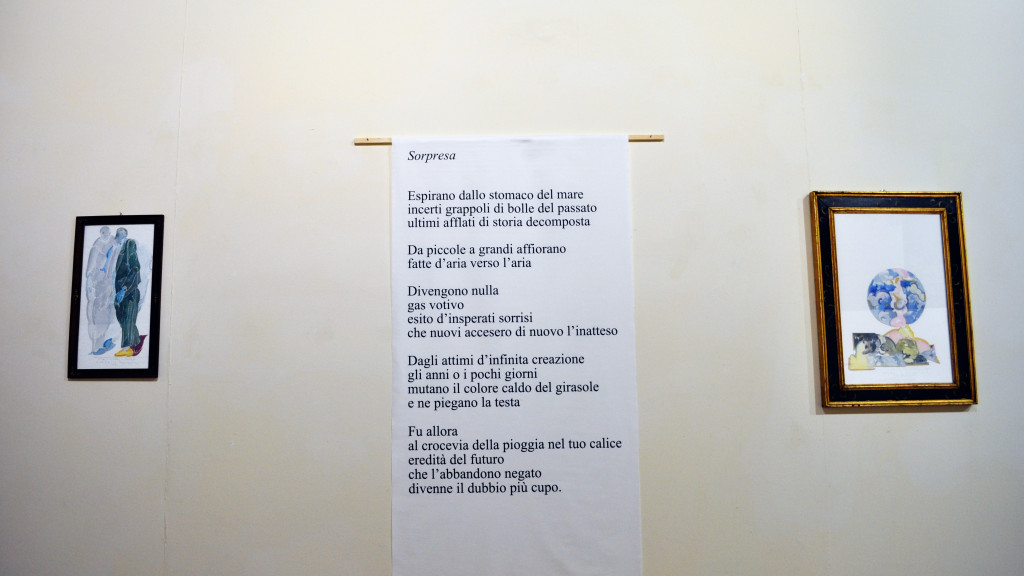 Sorpresa
Espirano dallo stomaco del mare
incerti grappoli di bolle del passato
ultimi afflati di storia decomposta
Da piccole a grandi affiorano
fatte d'aria verso l'aria
Divengono nulla
gas votivo
esito d'insperati sorrisi
che nuovi accesero di nuovo l'inatteso
Dagli attimi d'infinita creazione
gli anni o i pochi giorni
mutano il colore caldo del girasole
e ne piegano la testa
Fu allora
al crocevia della pioggia nel tuo calice
eredità del futuro
che l'abbandono negato
divenne il dubbio più cupo.